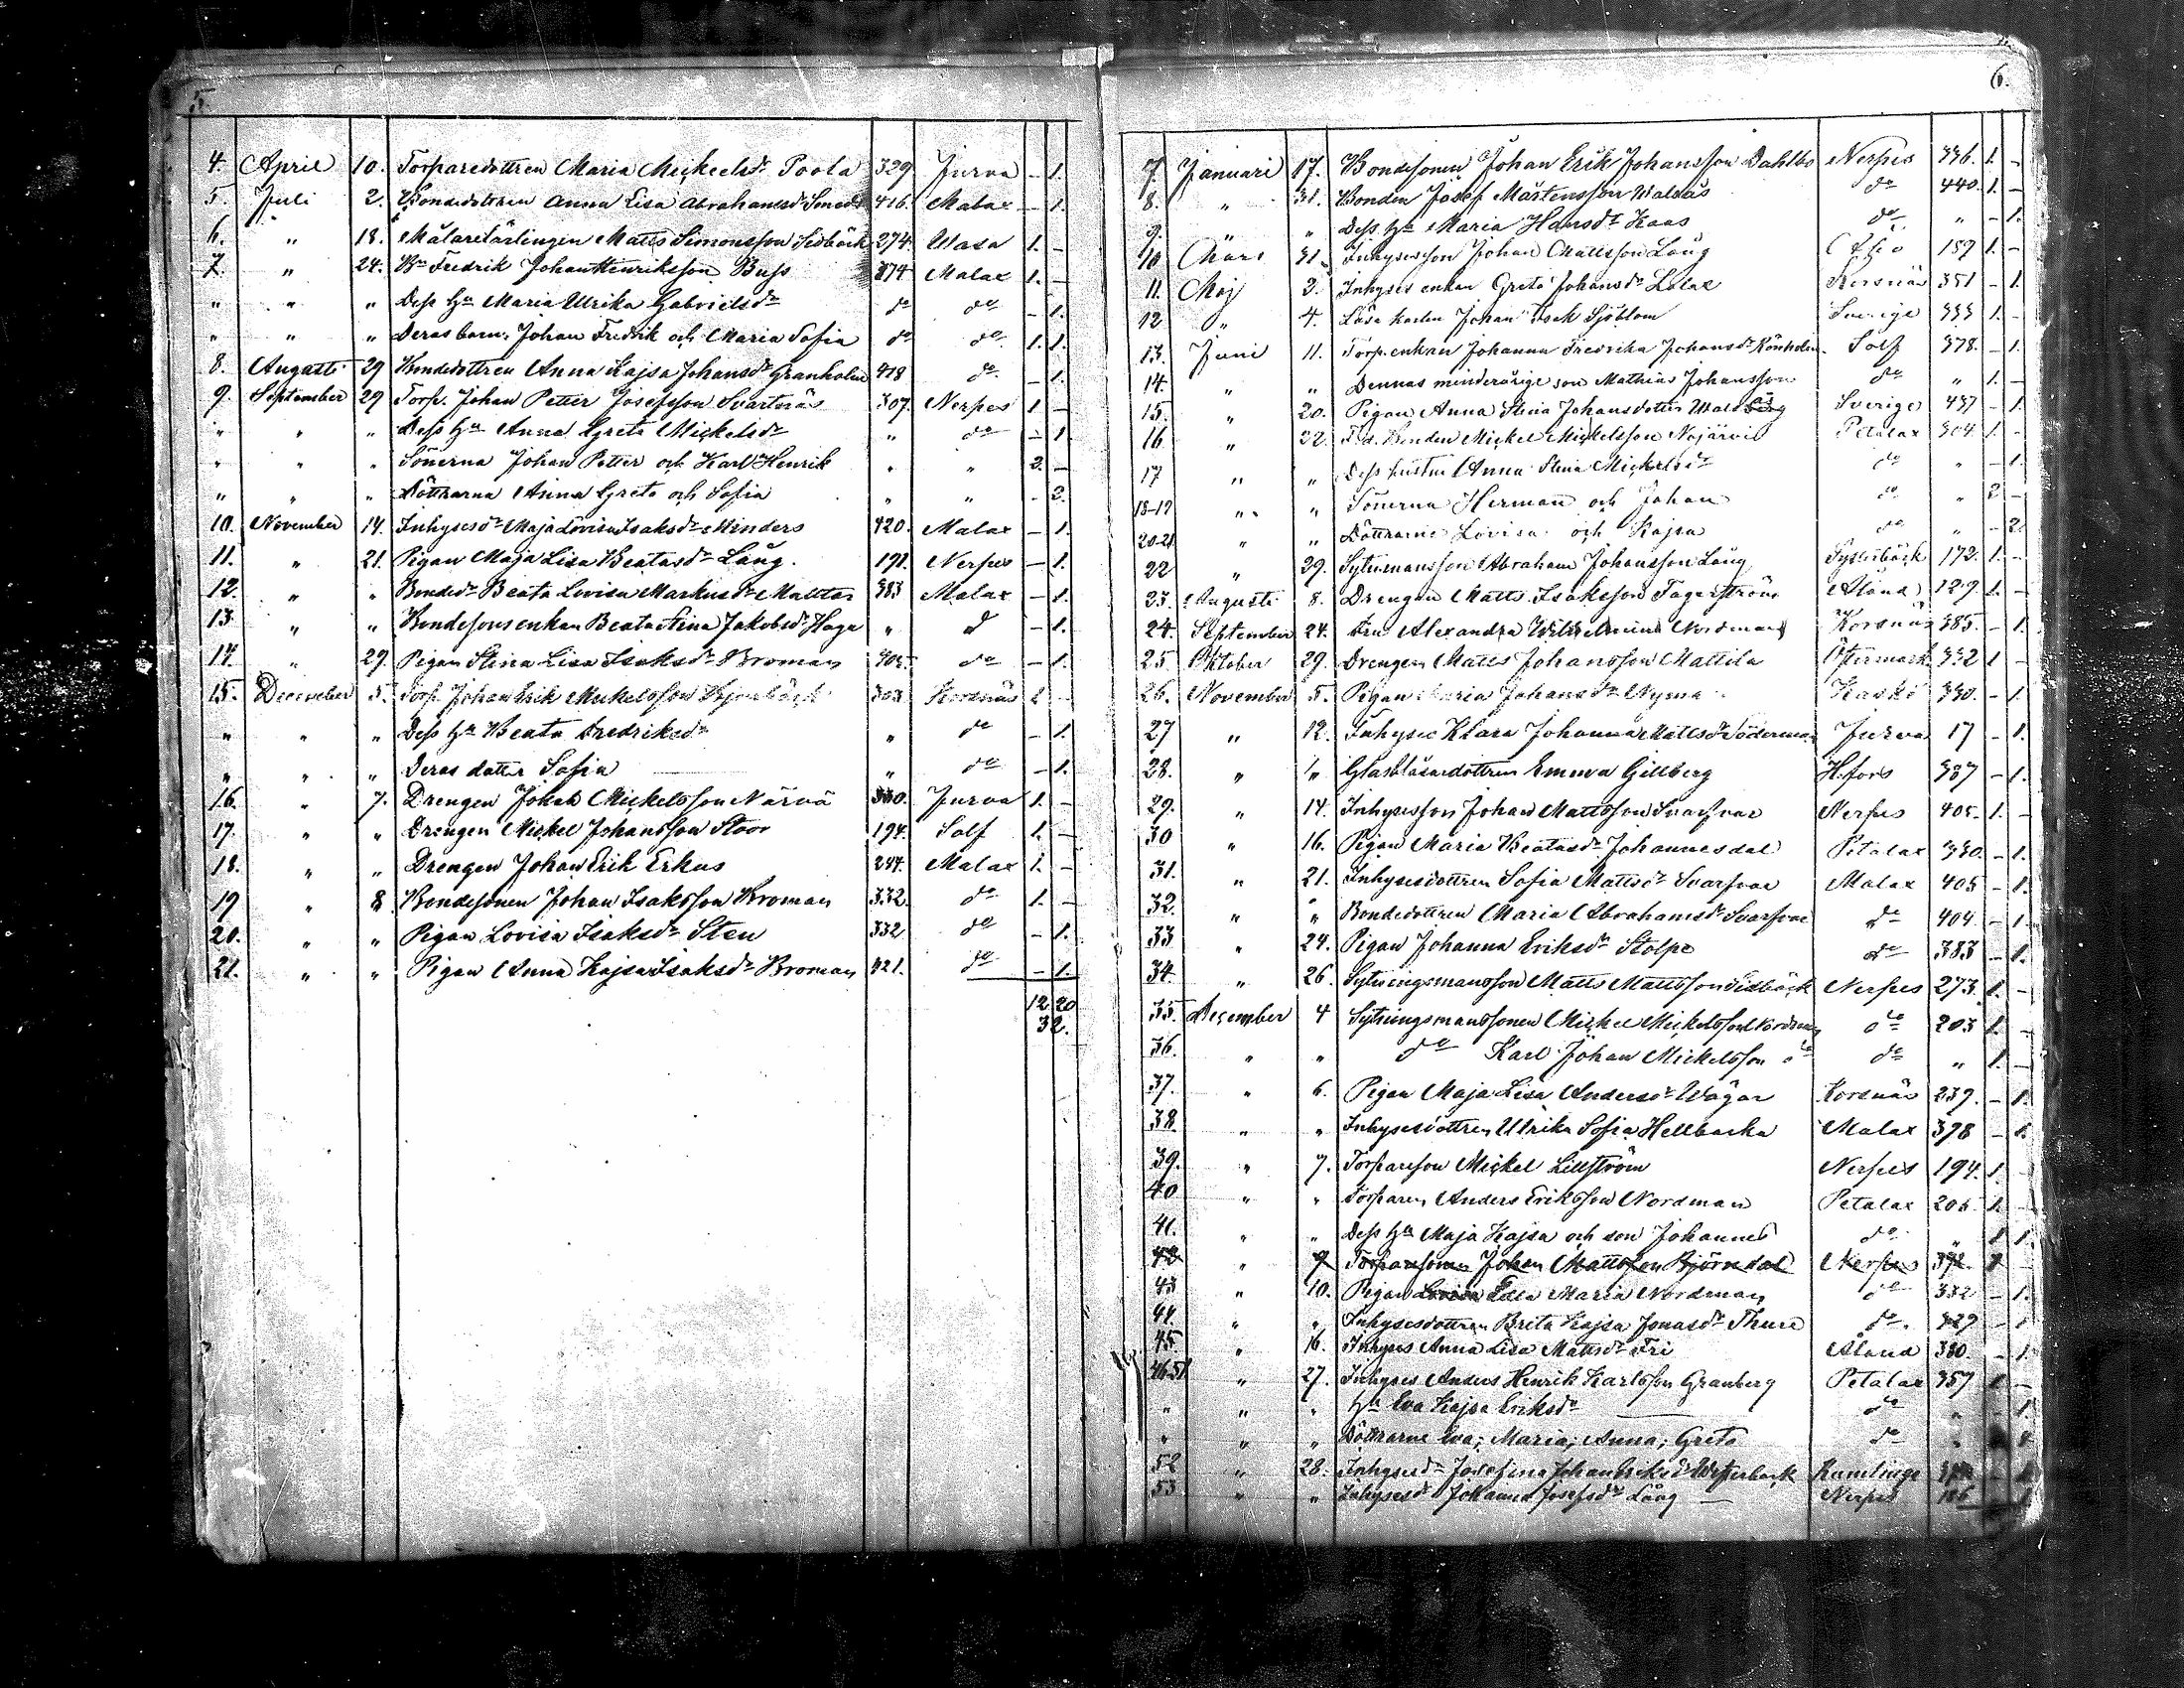 5.
4. April 10. Torparedottren Maria Mickelsdr Poola 329 Jurva – 1.
5. Juli 2. Bondedottren Anna Lisa Abrahamsdr Smeds 416. Malax – 1.
6. " 18. Målarelärlingen Matts Simonsson Sidbäck 274. Wasa 1. –
7. " 24. Bn Fredrik Johan Henriksson Buss 374 Malax 1. –
" " " Dess hu Maria Ulrika Gabrielsdr do do – 1.
" " " Deras barn: Johan Fredrik och Maria Sofia do do 1. 1.
8. Augusti 29 Bondedottren Anna Kajsa Johansdr Granholm 418 do – 1.
9. September 29 Torp. Johan Petter Josefsson Svartnäs 307. Nerpes 1 –
" " " Dess hu Anna Greta Mickelsdr " do – 1
" " " Sönerna Johan Petter och Karl Henrik " " 2. –
" " " Döttrarna Anna Greta och Sofia " " – 2.
10. November 14. Inhysesdr Maja Lovisa Isaksdr Minders 420. Malax – 1.
11. " 21. Pigan Maja Lisa Beatasdr Lång. 191. Nerpes – 1.
12. " " Bondedr Beata Lovisa Markusdr Malttas 383 Malax – 1.
13 " " Bondesonsenkan Beata Stina Jakobsdr Haga " d – 1.
14. " 29. Pigan Stina Lisa Isaksdr Broman do – 1.
15. December 5. Torp. Johan Erik Mickelsson 303 Korsnäs 1 –
" " " Dess hu Beata Fredriksdr " do – 1.
" " " Deras dotter Sofia " do – 1.
16. " 7. Drengen Johan Mickelsson Närvä 330. Jurva 1. –
17. " " Drengen Mickel Johansson Stoor 194. Solf 1. –
18. " " Drengen Johan Erik Erkus 244. Malax 1. –
19 " 8 Bondesonen Johan Isaksson Broman 332. do 1. –
20. " " Pigan Lovisa Isaksdr Sten 332 do – 1.
21. " " Pigan Anna Kajsa Isaksdr Broman 421. do – 1.
12 20
32.
6.
7. Januari 17. Bondesonen Johan Erik Johansson Dahlbo Nerpes 336. 1. –
8. " 31. Bonden Josef Mårtensson Waldås do 440. 1. –
9. " " Dess hu Maria Hansdr Kaas do " – 1.
10 Mars 31. Inhysesson Johan Mattsson Lång 159 1. –
11. Maj 3. Inhyses enkan Greta Johansdr Lalax Korsnäs 351 – 1.
12 " 4. Lösa karlen Johan Isak Sjöblom Sverige 333 1. –
13. Juni 11. Torp.enkan Johanna Fredrika Johansdr Rönholm Solf 378. – 1.
14. " " Dennas minderårige son Mathias Johansson do " 1. –
15. " 20. Pigan Anna Stina Johansdotter Sverige 437 – 1.
16 " 22. Bonden Mickel Mickelsson Nojärvi Petalax 304. 1. –
17 " " Dess hustru Anna Stina Mickelsdr do " – 1.
18-19 " " Sönerna Herman och Johan do " 2 –
20-21 " " Döttrarne Lovisa och Kajsa do " – 2.
22 " 29. Sytn.mansson Abraham Johansson Lång Sysbäck 172. 1. –
23. Augusti 8. Drengen Matts Isaksson Fagerström Åland 129. 1. –
24. September 24. Fru Alexandra Wilhelmina Nordman Korsnäs 385. – 1.
25 Oktober 29. Drengen Matts Johansson Mattila Östermark 332 1 –
26. November 5. Pigan Maria Johansdr Nyma Kaskö 330. – 1.
27 " 12. Inhyses Klara Johanna Mattsdr Söderman Jurva 17 – 1.
28. " " Glasblåsardottren Emma Gillberg H.fors 387 – 1.
29. " 14. Inhysesson Johan Mattsson Svarfvar Nerpes 405. 1. –
30 " 16. Pigan Maria Beatasdr Johannesdal Petalax 330. – 1.
31. " 21. Inhysesdottren Sofia Mattsdr Svarfvar Malax 405 – 1.
32. " " Bondedottren Maria Abrahamsdr Svarfvar do 404. – 1.
33 " 24. Pigan Johanna Eriksdr Stolpe do 383 – 1.
34. " 26. Sytningsmansson Matts Mattsson Sidbäck Nerpes 273. 1. –
35. December 4 Sytningsmanssonen Mickel Mickelsson Nordman do 203 1. –
36. " " do Karl Johan Mickelsson do do " 1. –
37. " 6. Pigan Maja Lisa Andersdr Wägar Korsnäs 239. – 1.
38. " " Inhysesdottren Ulrika Sofia Hellbacka Malax 398 – 1.
39. " 7. Torpareson Mickel Lillström Nerpes 194. 1. –
40 " " Torparen Anders Eriksson Nordman Petalax 205. 1. –
41. " " Dess hu Maja Kajsa och son Johannes do " 1 1.
42 " 9 Torparesonen Johan Mattsson Björndal Nerpes 392. 1 –
43 " 10. Pigan Lovisa Edla Maria Nordman do 332 – 1.
44. " " Inhysesdottren Brita Kajsa Jonasdr Thure do. 329 – 1
45. " 16. Inhyses Anna Lisa Mattsdr Fri Åland 330. – 1.
46-51 " 27. Inhyses Anders Henrik Karlsson Granberg Petalax 357 1 –
" " " Hu Eva Kajsa Eriksdr do " – 1.
" " " Döttrarne Eva; Maria; Anna; Greta do " – 4
52 " 28. Inhysesdr Josefina Johan Eriksdr Westerback – 1
53 " " Inhysesdr Johanna Josefsdr Lång – Nerpes 186 1